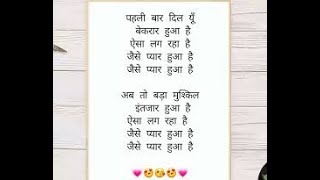 पहली बार दिल यूँ
बेकरार हुआ है
ऐसा लग रहा है
जैसे प्यार हुआ है
अब तो बड़ा मुश्किल
इंतजार हुआ है
ऐसा लग रहा है
जैसे प्यार हुआ है
जैसे प्यार हुआ है
💗🥰😘🥰💗